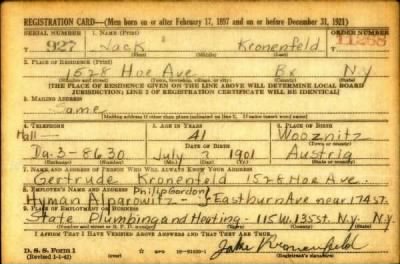 REGISTRATION CARD—(Men born on or after February 17, 1897 and on or before December 31, 1921)
SERIAL NUMBER 1. NAME (Print) ORDER NUMBER
T 927 Jack Kronenfeld 11288
(First) (Middle) (Last)
2. PLACE OF RESIDENCE (Print)
1528 Hoe Ave Bx N.Y
(Number and street) (Town, township, village, or city) (County) (State)
[THE PLACE OF RESIDENCE GIVEN ON THE LINE ABOVE WILL DETERMINE LOCAL BOARD
JURISDICTION; LINE 2 OF REGISTRATION CERTIFICATE WILL BE IDENTICAL]
3. MAILING ADDRESS
Same
[Mailing address if other than place indicated on line 2. If same insert word same]
4. TELEPHONE 5. AGE IN YEARS 6. PLACE OF BIRTH
Hall— 41 Wooznitz
DATE OF BIRTH (Town or county)
Da-3-8630 July 2 1901 Austria
(Mo.) (Day) (Yr.) (State or country)
7. NAME AND ADDRESS OF PERSON WHO WILL ALWAYS KNOW YOUR ADDRESS
Gertrude Kronenfeld 1528 Hoe Ave
8. EMPLOYER'S NAME AND ADDRESS Philip Gordon)
Hyman Alparowitz - Eastburn Ave near 174 st
9. PLACE OF EMPLOYMENT OR BUSINESS
State Plumbing and Heating - 115 W. 135 st. N.Y. N.Y.
(Number and street or R. F. D. number) (Town) (County) (State)
I AFFIRM THAT I HAVE VERIFIED ABOVE ANSWERS AND THAT THEY ARE TRUE.
D. S. S. Form 1
(Revised 1-1-42) (over)
Jake Kronenfeld